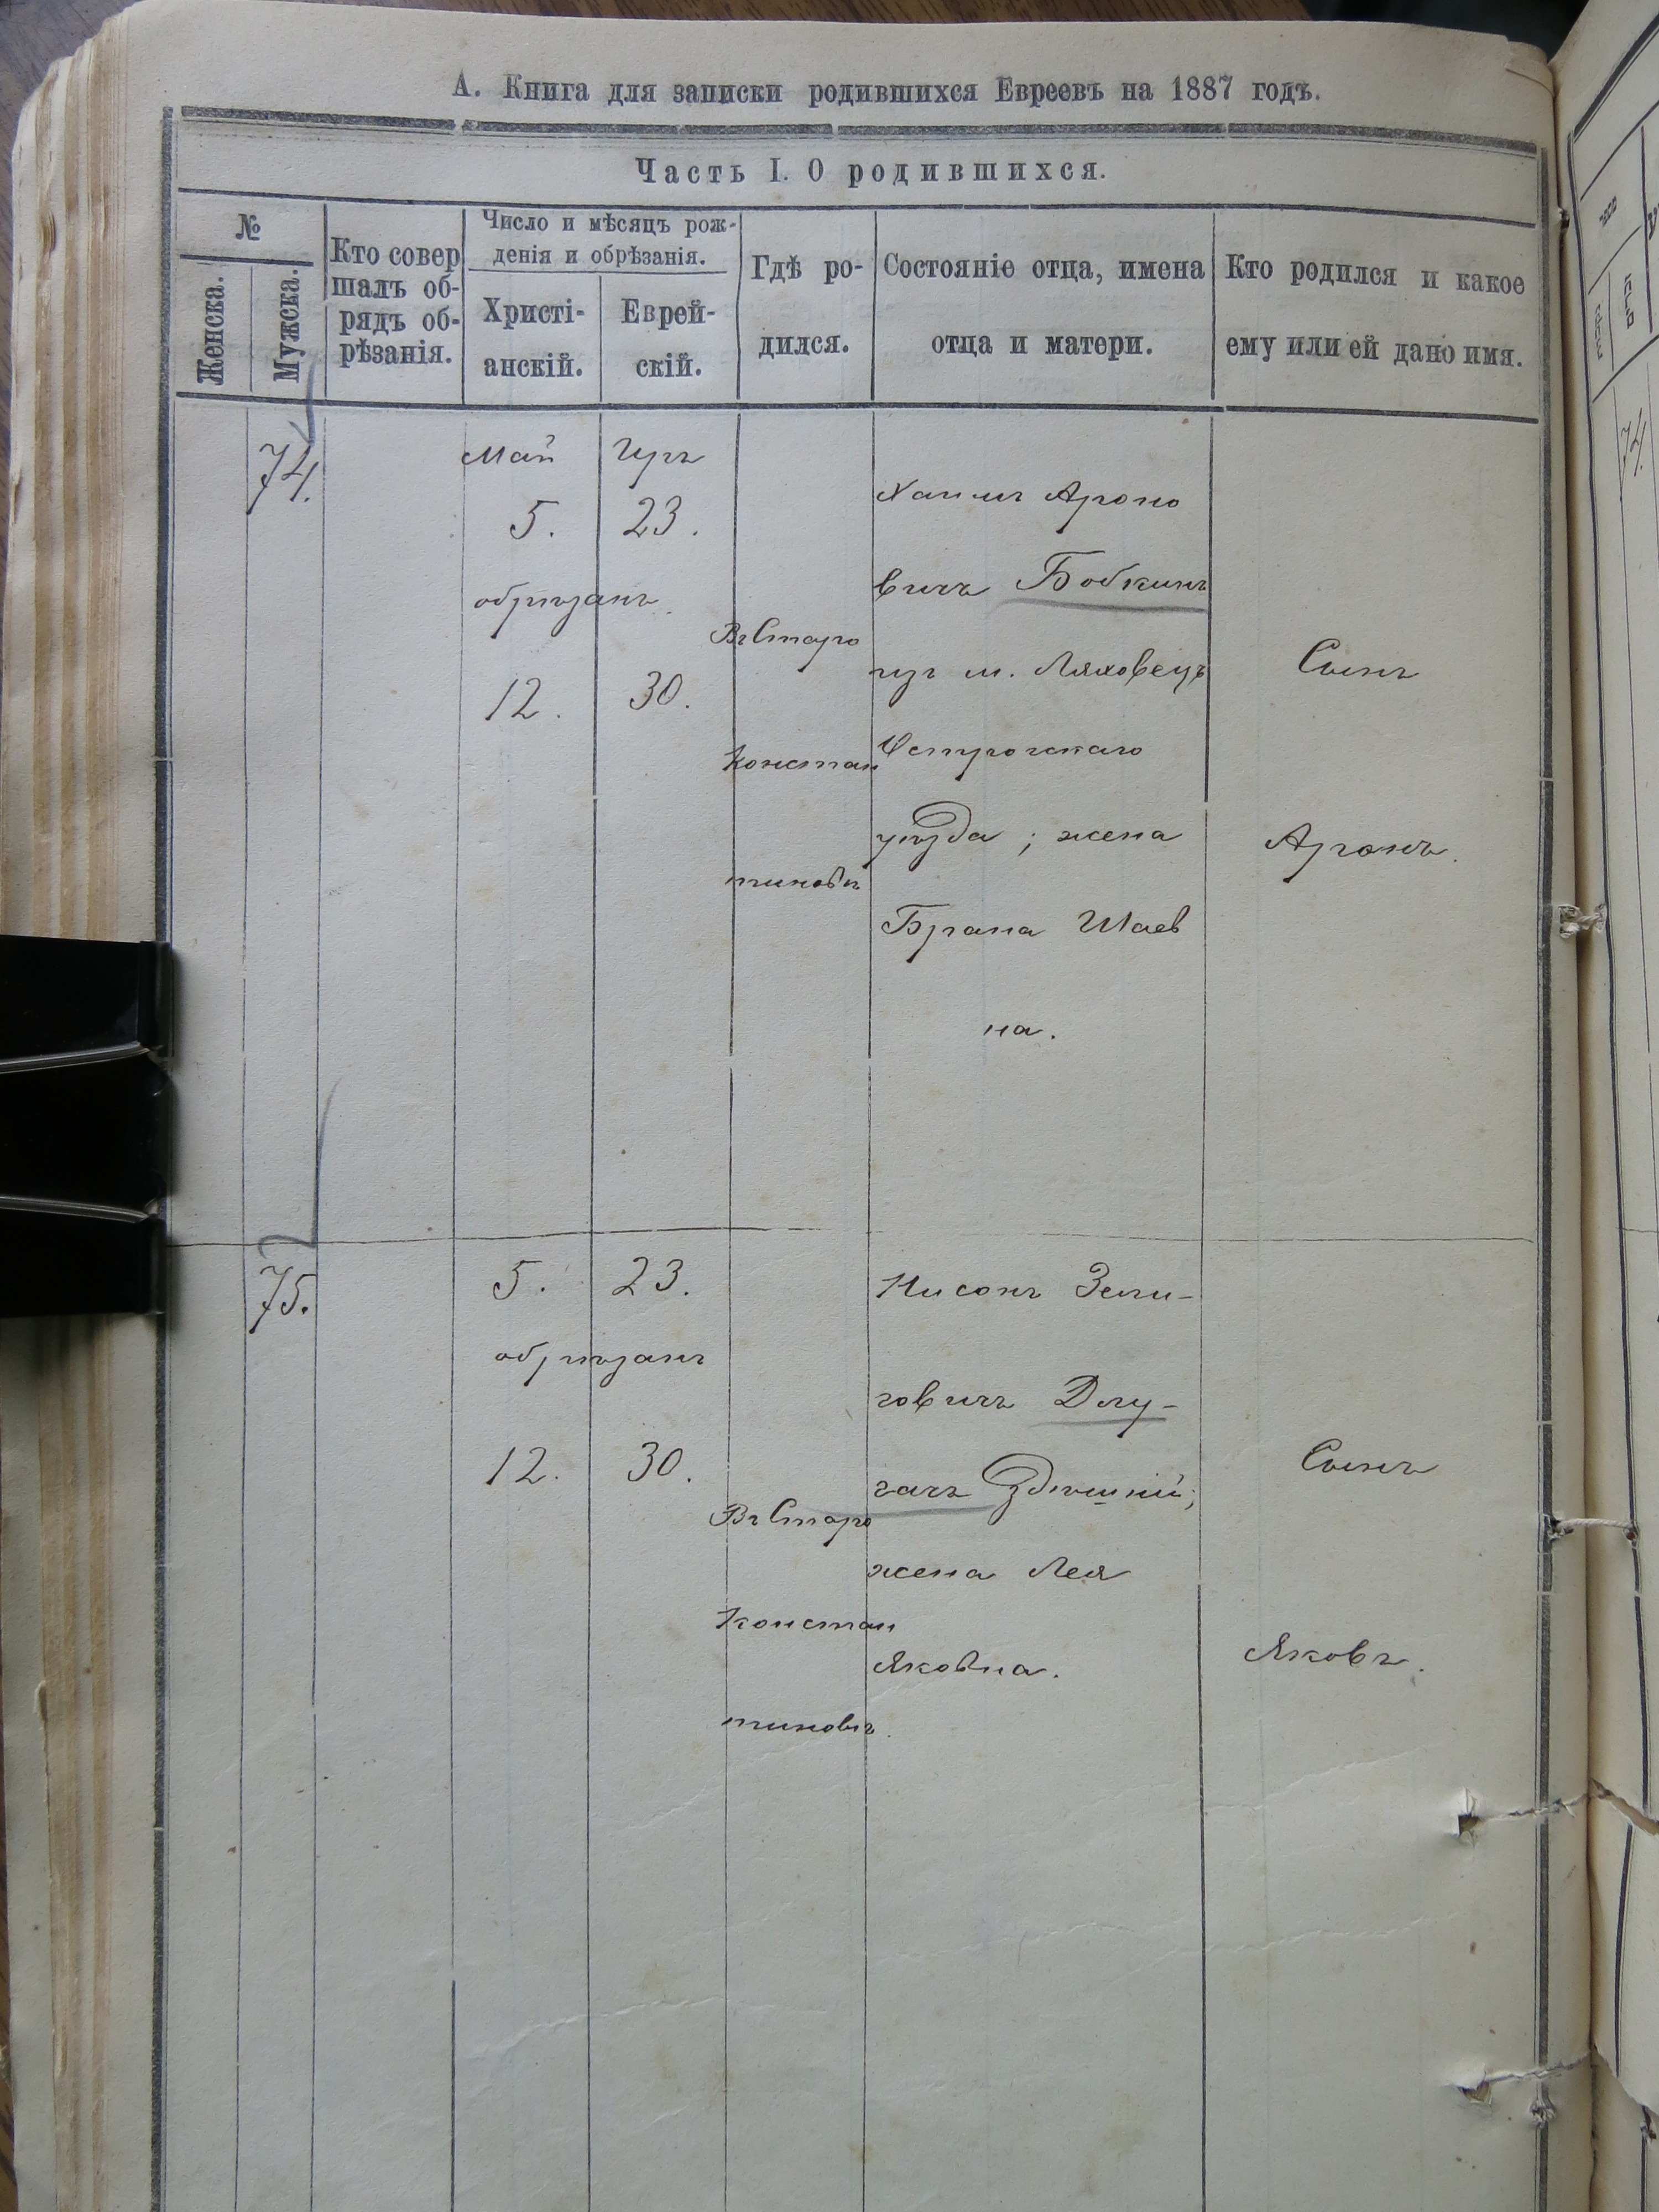 А. Книга для записки родившихся Евреевъ на 1887 годъ.
Часть I. О родившихся.
№
Женска.
Мужска.
Кто совер
шалъ об-
рядъ об-
рѣзанія.
Число и мѣсяцъ рож-
денія и обрѣзанія.
Христі-
анскій.
Еврей-
скій.
Гдѣ ро-
дился.
Состояніе отца, имена
отца и матери.
Кто родился и какое
ему или ей дано имя.
74.
Май
5.
обрѣзанъ
12.
Iуръ
23.
30.
Въ Старо
констан
тиновѣ
Хаимъ Ароно
вичъ Бобкинъ
изъ м. Ляховецъ
Острогскаго
уѣзда; жена
Брана Шаев
на.
Сынъ
Аронъ.
75.
5.
23.
обрѣзанъ
12.
30.
Въ Старо
констан
тиновѣ.
Нисонъ Зели-
говичъ Длу-
гачъ Здѣшній;
жена Лея
Яковна.
Сынъ
Яковъ.
74.